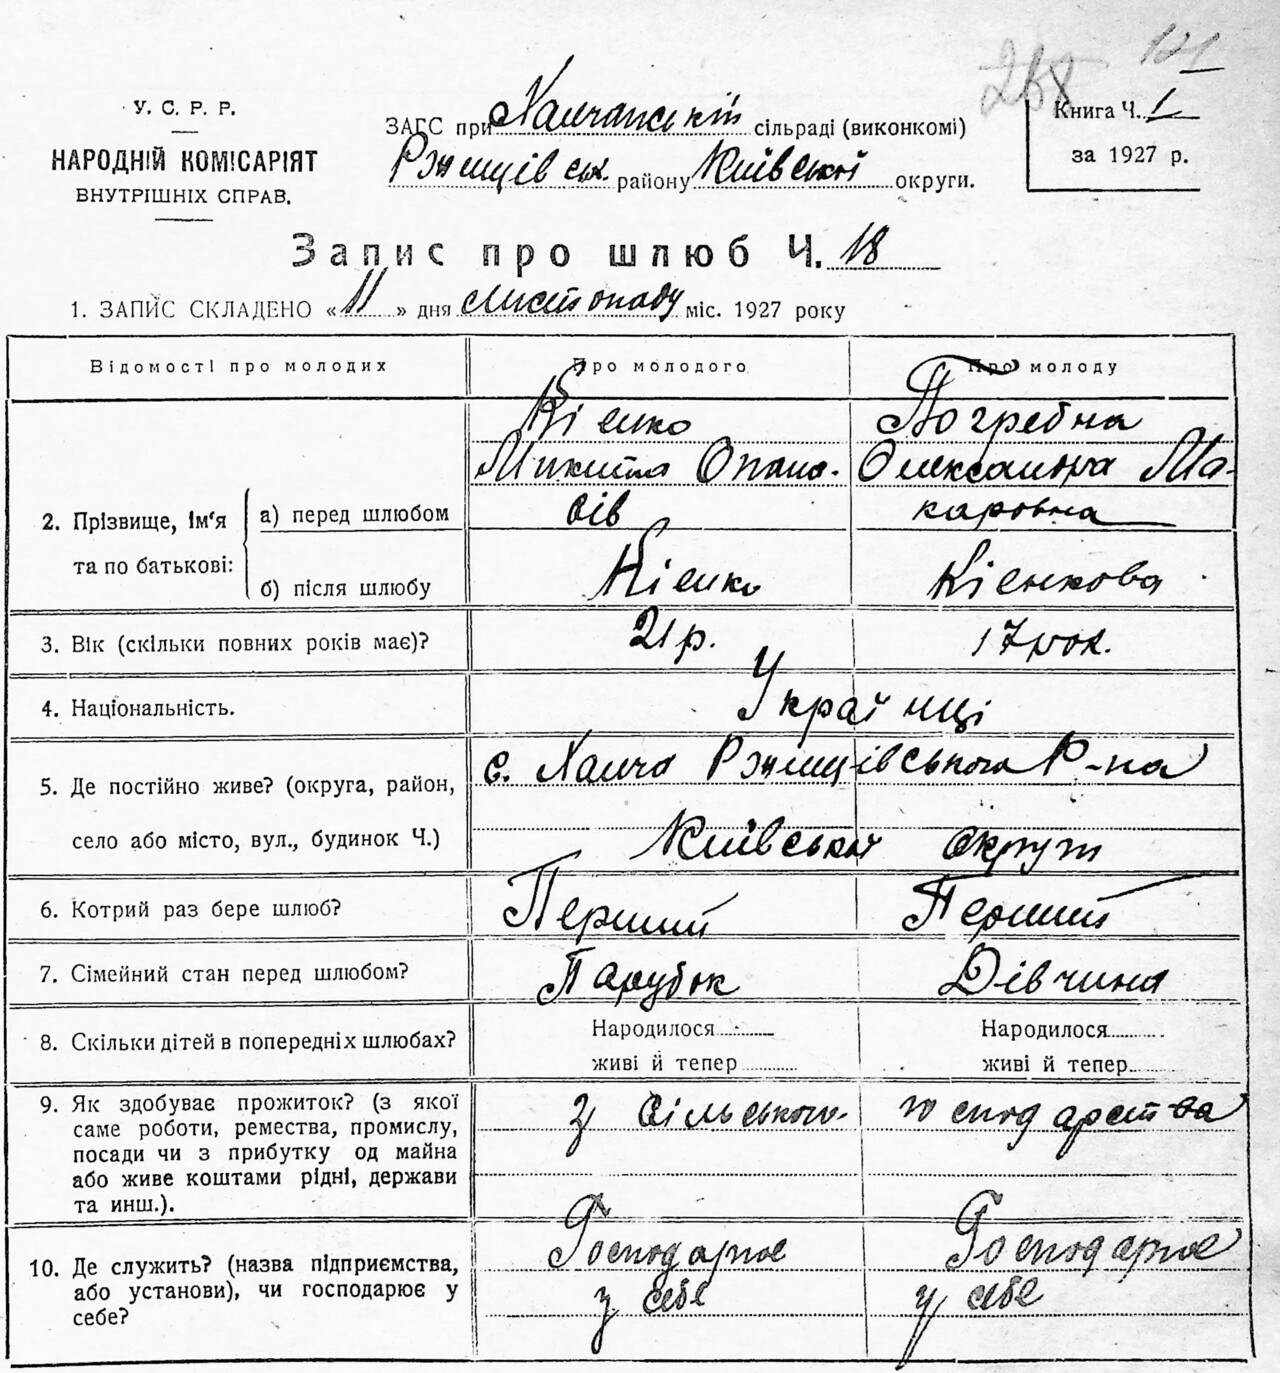 121
268
У. С. Р. Р.
НАРОДНІЙ КОМІСАРІЯТ
ВНУТРІШНІХ СПРАВ.
ЗАГС при Халчанській сільраді (виконкомі)
Ржищівськ. району Київської округи.
Книга Ч. 1
за 1927 р.
Запис про шлюб Ч. 18
1. ЗАПИС СКЛАДЕНО «11» дня листопаду міс. 1927 року
Відомості про молодих Про молодого Про молоду
2. Прізвище, ім'я та по батькові:
а) перед шлюбом
Кієнко Погребна
Микита Опана- Олександра Ма-
сів каровна
б) після шлюбу Кієнко Кієнкова
3. Вік (скільки повних років має)? 21 р. 17 рок.
4. Національність. Українці
5. Де постійно живе? (округа, район, село або місто, вул., будинок Ч.)
с. Халча Ржищівського Р-на
Київської округи
6. Котрий раз бере шлюб? Перший Перший
7. Сімейний стан перед шлюбом? Парубок Дівчина
8. Скільки дітей в попередніх шлюбах? Народилося Народилося
живі й тепер живі й тепер
9. Як здобуває прожиток? (з якої
саме роботи, ремества, промислу,
посади чи з прибутку од майна
або живе коштами рідні, держави
та инш.).
З сільського господарства
10. Де служить? (назва підприємства,
або установи), чи господарює у
себе?
Господарює Господарює
у себе у себе